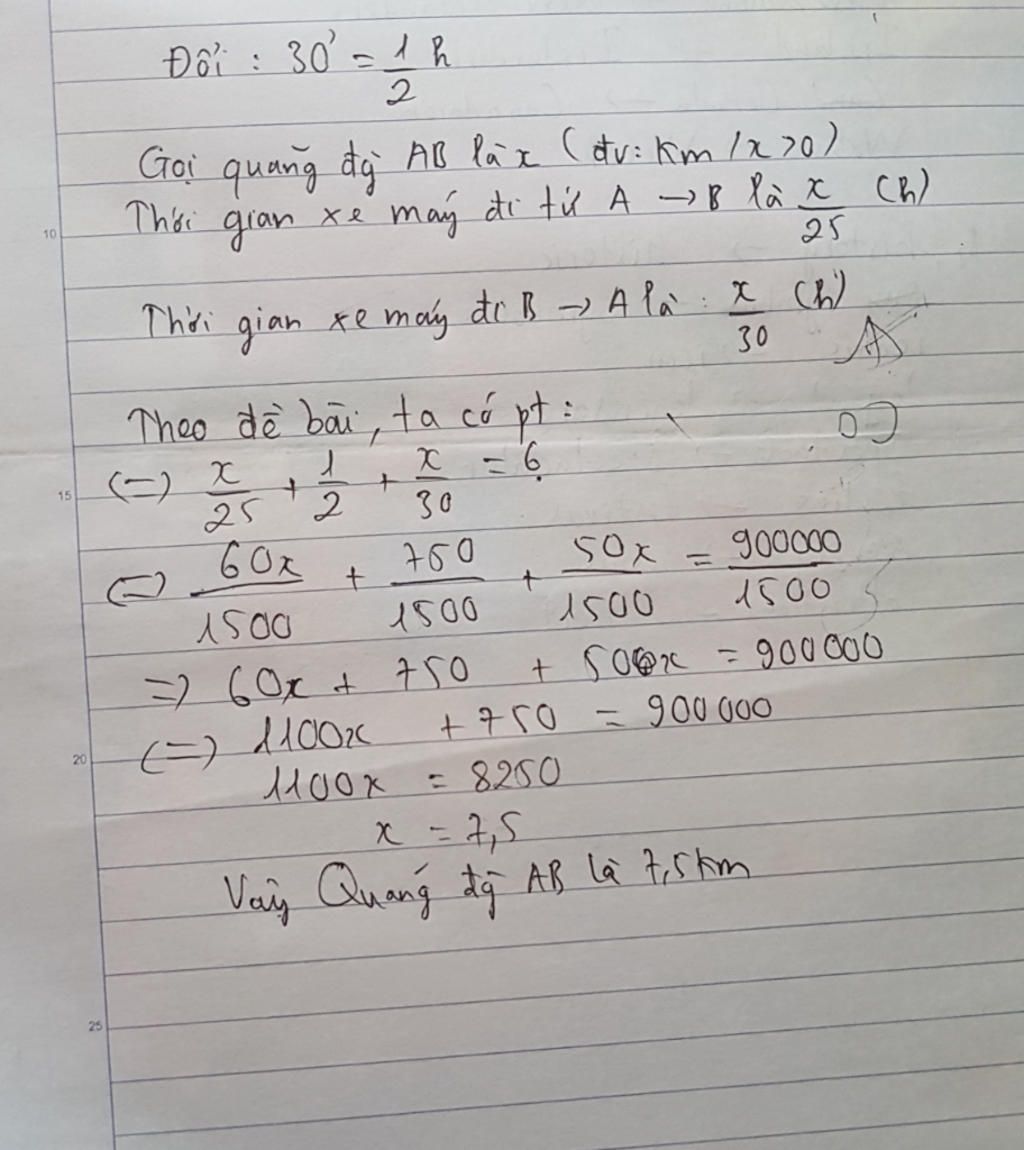 Đổi : 30' = 1/2 h
Gọi quãng đg AB là x ( đv: Km / x > 0 )
10
Thời gian xe máy đi từ A → B là x/25 (h)
Thời gian xe máy đi B → A là : x/30 (h)
Theo đề bài, ta có pt :
15
(=) x/25 + 1/2 + x/30 = 6
(=) 60x/1500 + 750/1500 + 50x/1500 = 900000/1500
=) 60x + 750 + 500x = 900000
(=) 1100x + 750 = 900000
20
1100x = 8250
x = 7,5
Vậy Quãng đg AB là 7,5 Km
25